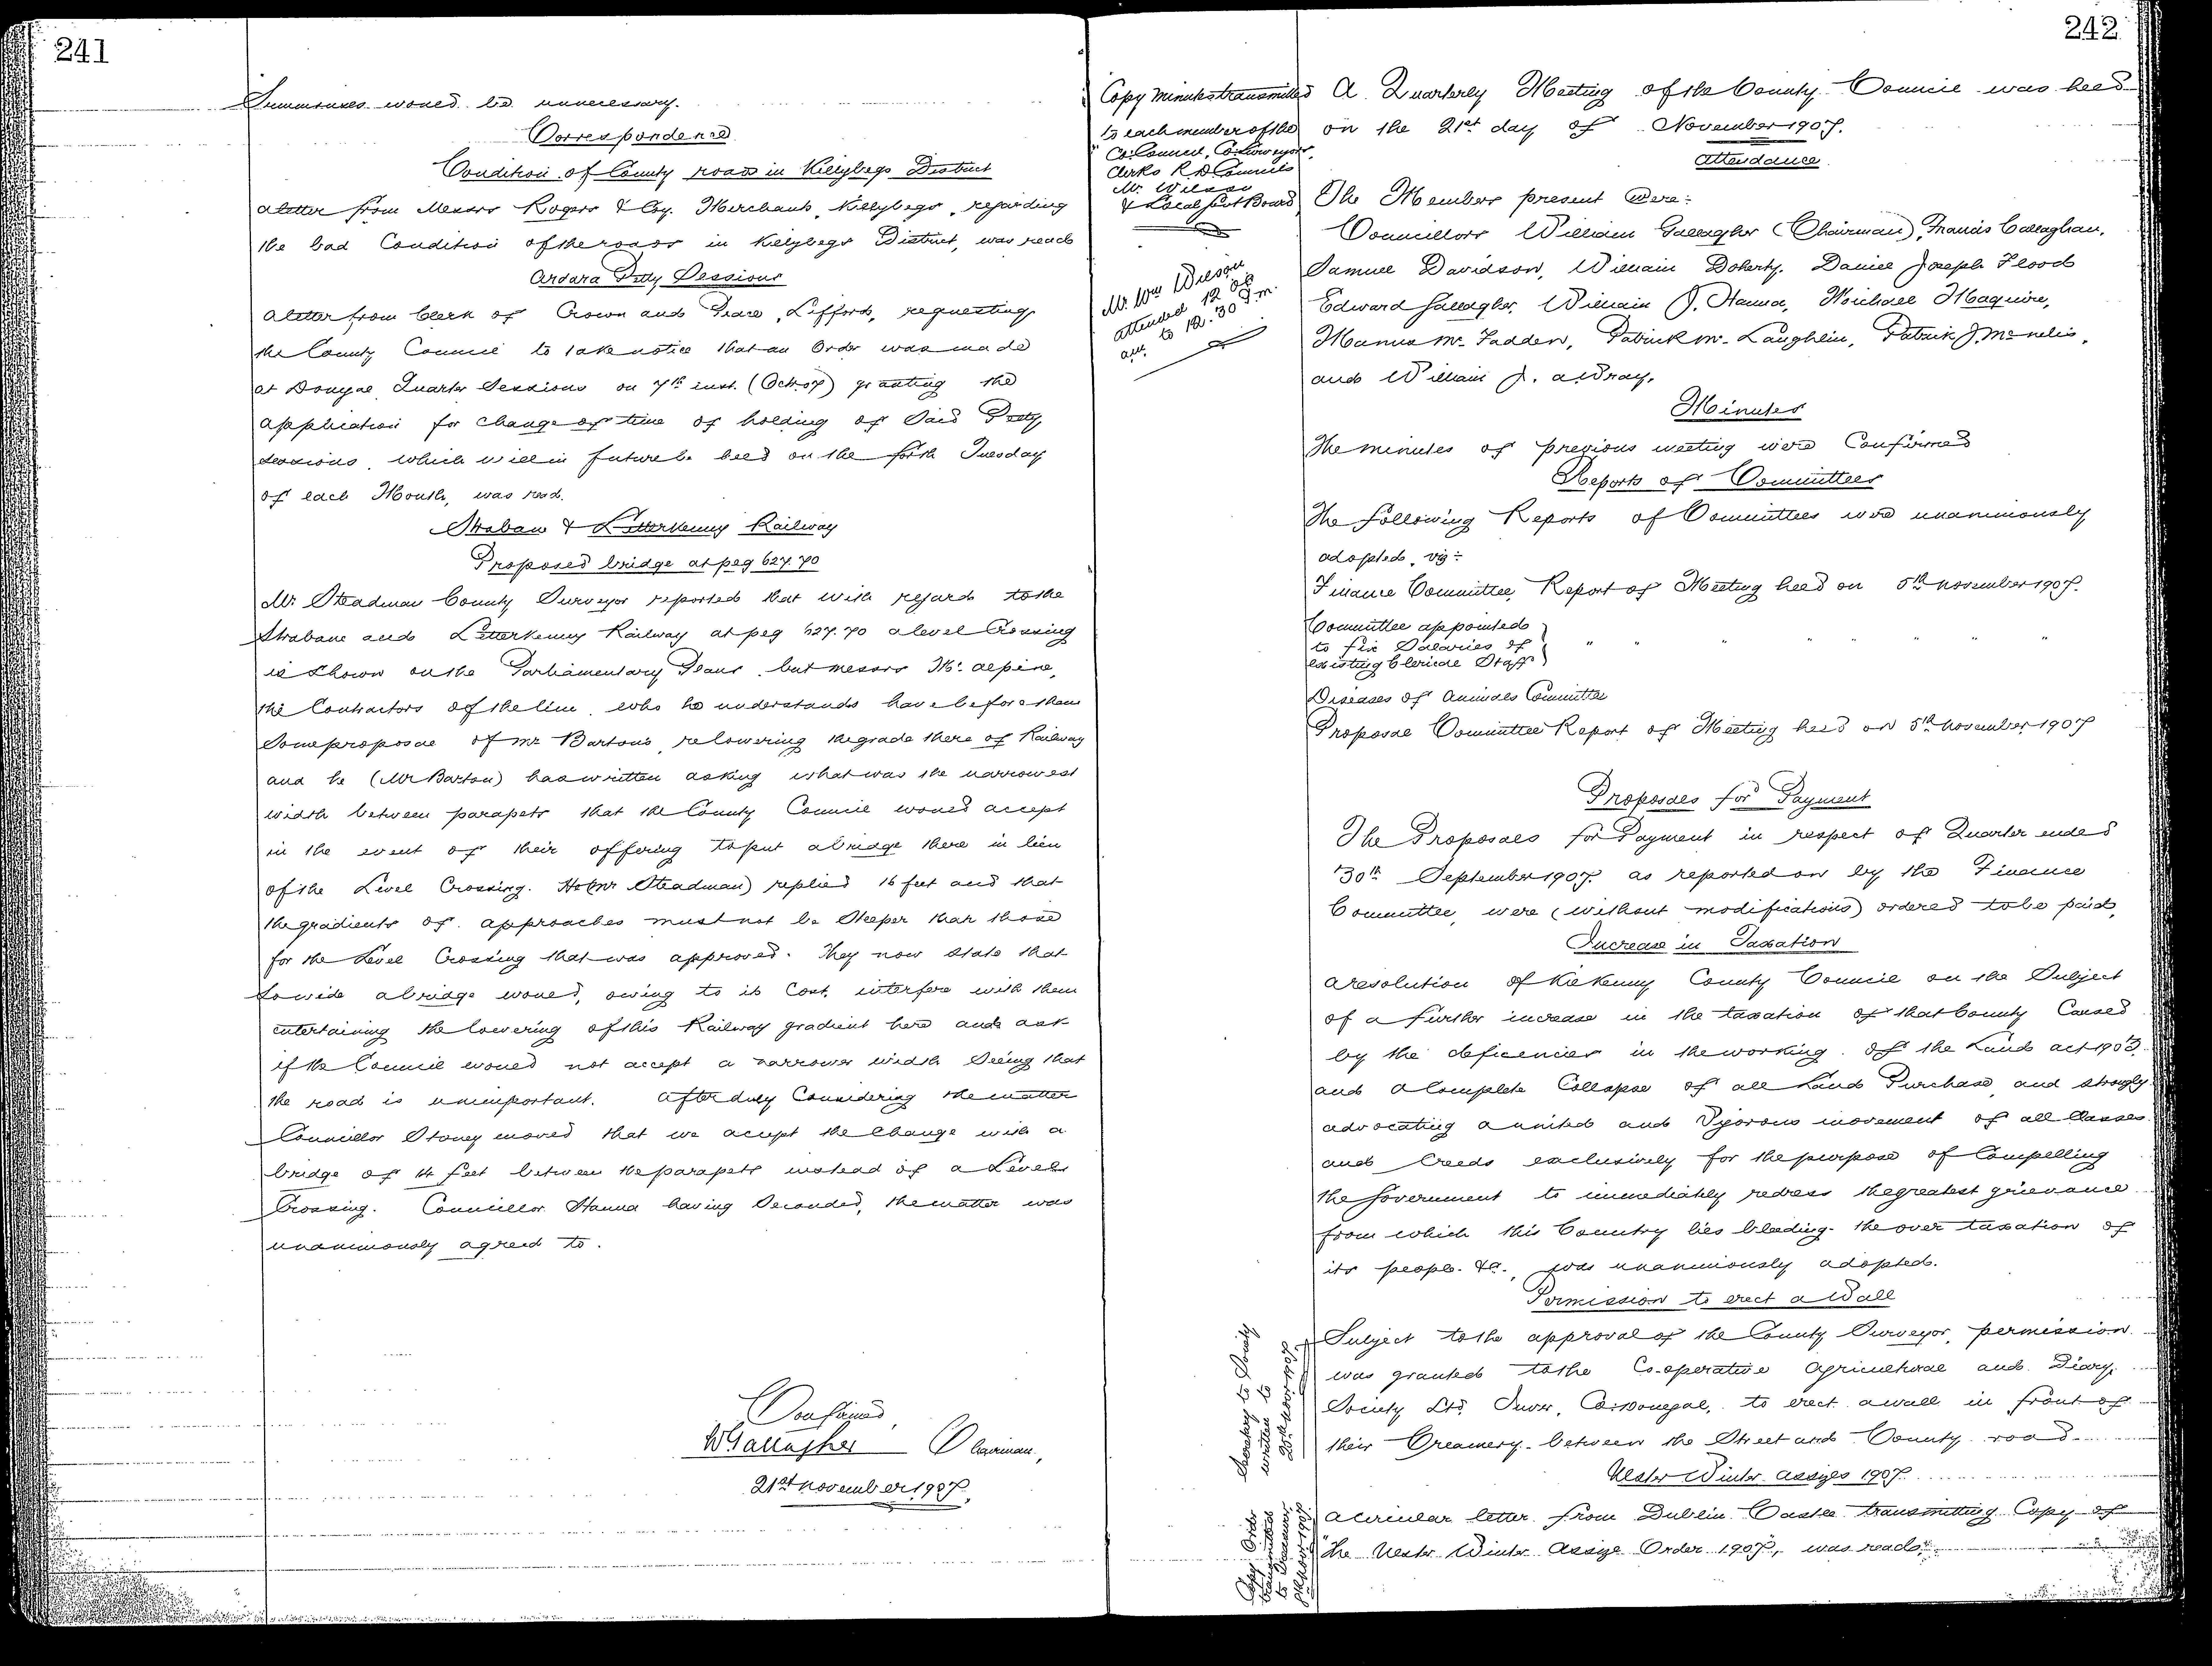 241
Summonses would be unnecessary.
Correspondence
Condition of County roads in Killybegs District
A letter from Messrs Rogers & Coy. Merchants, Killybegs, regarding
the bad Condition of the roads in Killybegs District, was read
Ardara Petty Sessions
A letter from Clerk of Crown and Peace, Lifford, requesting
the County Council to take notice that an Order was made
at Donegal Quarter Sessions on 7th inst. (Oct. 07) granting the
application for change of time of holding of said Petty
Sessions, which will in future be held on the forth Tuesday
of each Month, was read.
Strabane & Letterkenny Railway
Proposed bridge at peg 627.70
Mr. Steadman County Surveyor reported that with regard to the
Strabane and Letterkenny Railway at peg 627.70 a level Crossing
is shown on the Parliamentary Plans, but messrs Mc. Alpine,
the Contractors of the line, who he understands have before them
Some proposal of Mr Barton's re lowering the grade there of Railway
and he (Mr Barton) has written asking what was the narrowest
width between parapets that the County Council would accept
in the event of their offering to put a bridge there in lieu
of the Level Crossing. He (Mr Steadman) replied 16 feet and that
the gradients of approaches must not be Steeper than those
for the Level Crossing that was approved. They now state that
So wide a bridge would, owing to its Cost, interfere with them
entertaining the lowering of this Railway gradient here and ask
if the Council would not accept a narrower width Seeing that
the road is unimportant. After duly Considering the matter
Councillor Stoney moved that we accept the Change with a
bridge of 14 feet between the parapets instead of a Level
Crossing. Councillor Hanna having Seconded, the matter was
unanimously agreed to.
Confirmed,
W Gallagher Chairman,
21st November 1907,
242
Copy Minutes transmitted
to each member of the
Co: Council, Co: Surveyors,
Clerks R D Councils
Mr. Wilson
& Local Govt Board
Mr. Wm Wilson
attended 12
to 12.30 P.m.
A Quarterly Meeting of the County Council was held
on the 21st day of November 1907.
Attendance
The Members present were:
Councillors William Gallagher (Chairman), Francis Callaghan,
Samuel Davidson, William Doherty, Daniel Joseph Flood
Edward Gallagher, William J. Hanna, Michael Maguire,
Manus Mc. Fadden, Patrick Mc. Laughlin, Patrick J. McNelis,
and William J. A. Wray.
Minutes
The minutes of previous meeting were Confirmed
Reports of Committees
The following Reports of Committees were unanimously
adopted, viz:
Finance Committee, Report of Meeting held on 5th November 1907.
Committee appointed
to fix Salaries of
existing Clerical Staff } " " " " " " "
Diseases of Animals Committee
Proposal Committee Report of Meeting held on 5th November 1907
Proposals for Payment
The Proposals for Payment in respect of Quarter ended
30th September 1907, as reported on by the Finance
Committee, were (without modifications) ordered to be paid,
Increase in Taxation
A resolution of Kilkenny County Council on the Subject
of a further increase in the taxation of that County Caused
by the deficiencies in the working of the Land Act 1903,
and a Complete Collapse of all Land Purchase, and strongly
advocating a united and Vigorous movement of all Classes
and Creeds exclusively for the purpose of Compelling
the Government to immediately redress the greatest grievance
from which this Country lies bleeding - the over taxation of
its people. &c., was unanimously adopted.
Permission to erect a Wall
Secretary to Society
written to
25th Novr 1907
Subject to the approval of the County Surveyor, permission
was granted to the Co-operative Agricultural and Diary
Society Ltd. Inver, Co: Donegal, to erect a wall in front of
their Creamery between the Street and County road.
Ulster Winter Assizes 1907
Copy Order
transmitted
A circular letter from Dublin Castle transmitting Copy of
the Ulster Winter Assize Order 1907, was read.